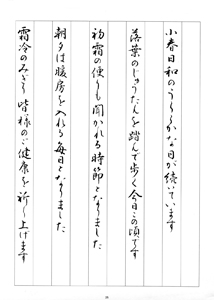 小春日和のうららかな日が続いています
落葉のじゅうたんを踏んで歩く今日この頃です
初霜の便りも聞かれる時節となりました
朝夕は暖房を入れる毎日となりました
霜冷のみぎり 皆様のご健康を祈り上げます